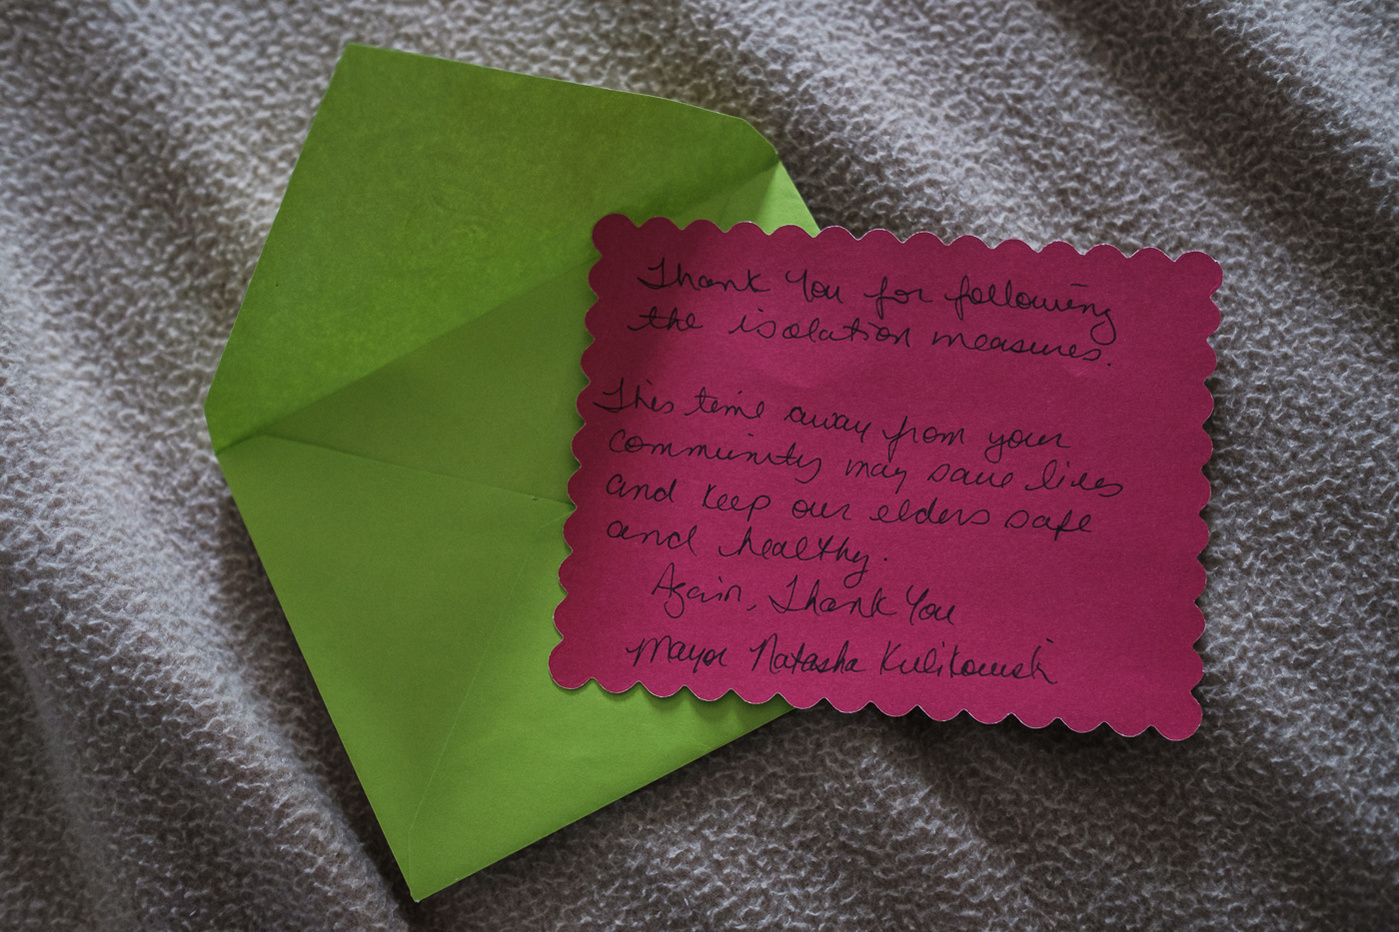 Thank You for following
the isolation measures.
This time away from your
community may save lives
and keep our elders safe
and healthy.
Again, Thank You
Mayor Natasha Kulikowski